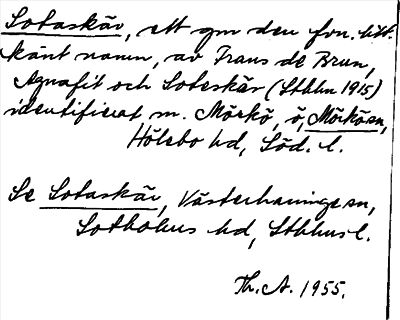 Sotaskär, ett gm den fvn. litt.
känt namn, av Frans de Brun,
Agnafit och Soteskär (Sthlm 1915)
identifierat m. Mörkö, ö, Mörkö sn,
Hölebo hd, Söd. l.
Se Sotaskär, Västerhaninge sn,
Sotholms hd, Sthlms l.
Th. A. 1955.